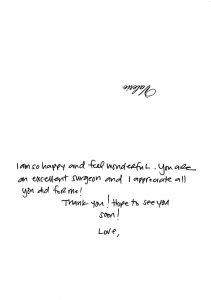 Valerie
I am so happy and feel wonderful. You are
an excellent surgeon and I appreciate all
you did for me!
Thank you! Hope to see you
soon!
Love,